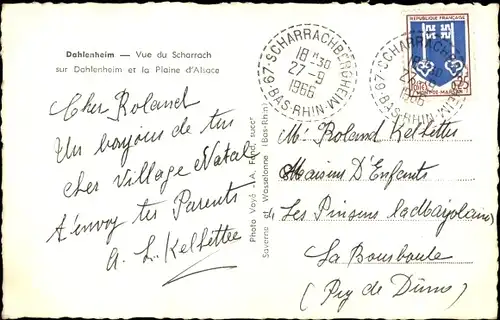 Dahlenheim — Vue du Scharrach
sur Dahlenheim et la Plaine d'Alsace
Cher Roland
Un bonjour de ton
cher Village Natale
t'envoy tes Parents
A. L. Kelhetter
Photo Voyé — A. Fand, succr
Saverne et Wasselonne (Bas-Rhin)
67-SCHARRACHBERGHEIM
18H30
27-9
1966
BAS-RHIN
67-SCHARRACHBERGHEIM
18H30
27-9
1966
BAS-RHIN
REPUBLIQUE FRANÇAISE
0,25
POSTES
MONT-DE-MARSAN
Mr Roland Kelhetter
Maison D'Enfants
Les Pinsons
La Bourboule
(Puy de Dôme)